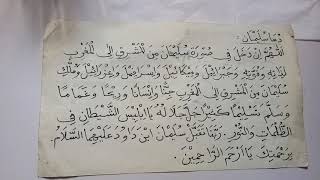 دعاء سليمان:
اللهم ان دخل في صورة سليمان من المشرق الى المغرب
لذاته وقوته وجبرائيل وميكائيل واسرافيل وعزرائيل وملك
سليمان من المشرق الى المغرب جنا وانسانا وريحا وغماما
وسلم تسليما كثيرا خلا له يا ابليس الشيطان في
الظلمات والنور. ربنا تقبل سليمان ابن داود عليهما السلام
برحمتك يا ارحم الراحمين.